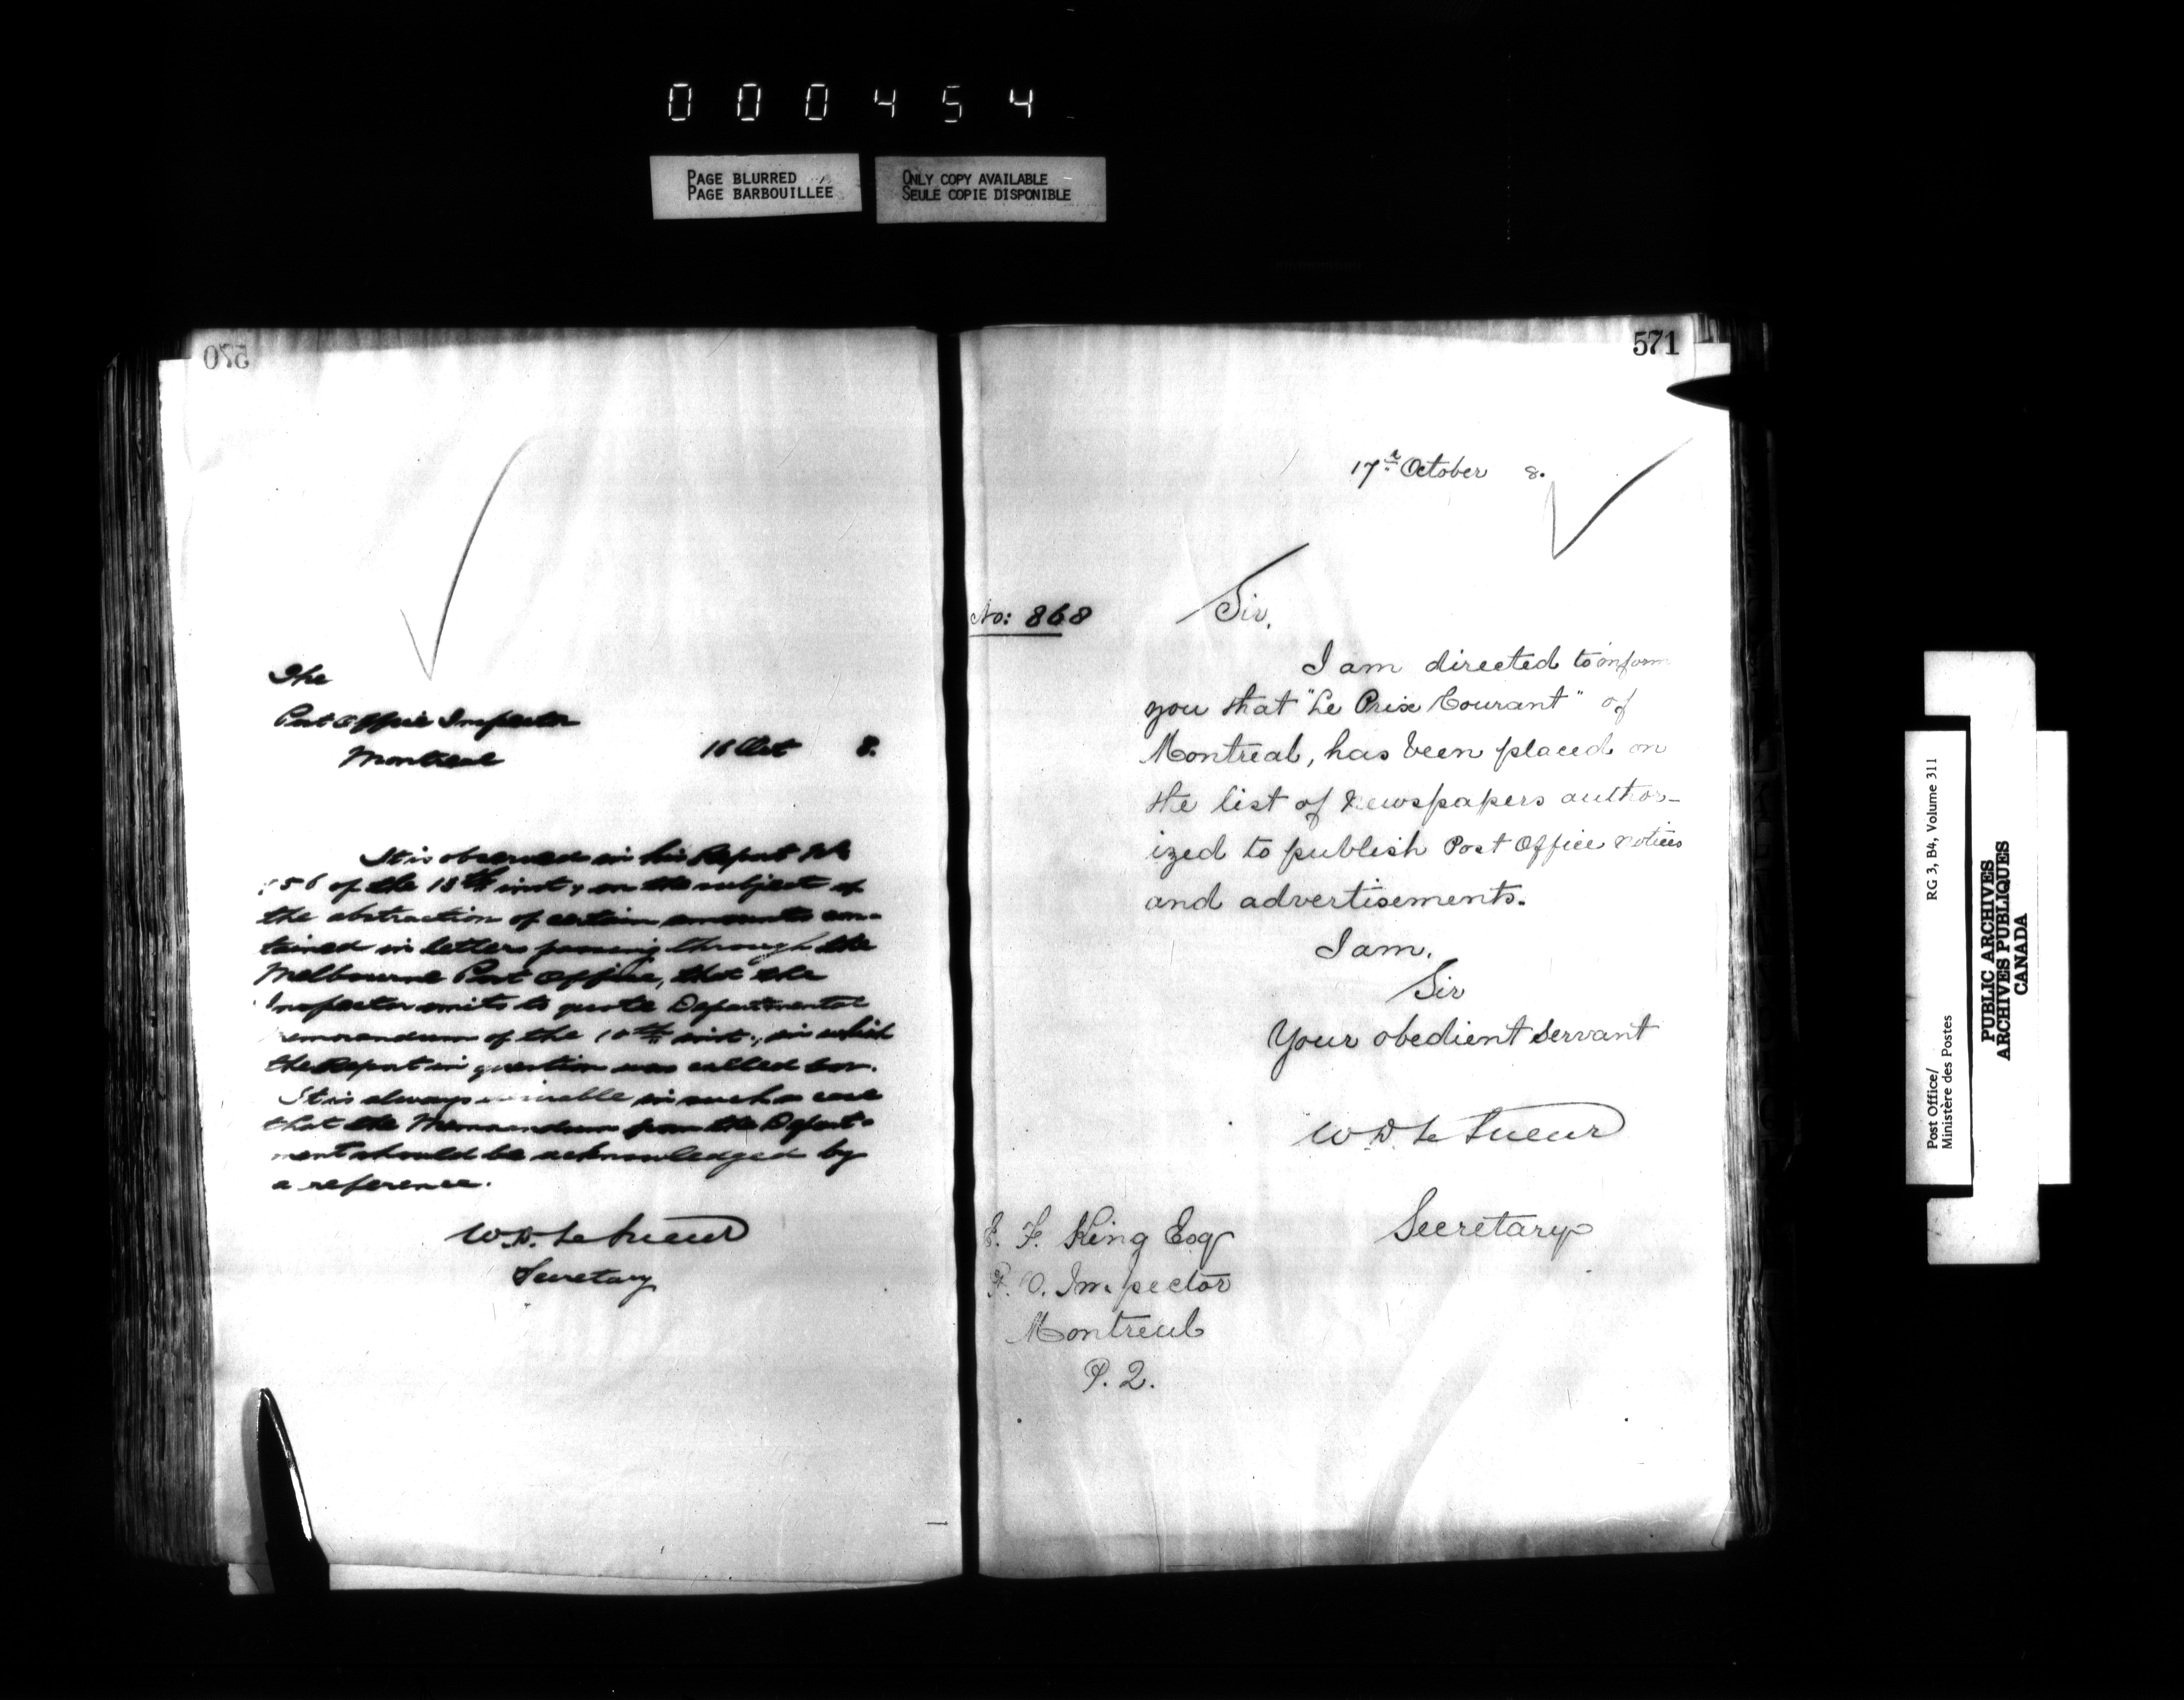 000454
PAGE BLURRED
PAGE BARBOUILLEE
ONLY COPY AVAILABLE
SEULE COPIE DISPONIBLE
570
The
Post Office Inspector
Montreal
16 Oct 8.
It is observed in his Report No
56 of the 13th inst, on the subject of
the abstraction of certain amounts con-
tained in letters passing through the
Melbourne Post Office, that the
Inspector omits to quote Departmental
emorandum of the 10th inst., in which
the Report in question was called for.
It is always in such a case
that the Memorandum from the Depart-
ment should be acknowledged by
a reference.
W.D. Le Sueur
Secretary
571
17th October 8.
No: 868
Sir,
I am directed to inform
you that "Le Prix Courant" of
Montreal, has been placed on
the list of newspapers author-
ized to publish Post Office notices
and advertisements.
I am,
Sir
Your obedient Servant
W D Le Sueur
Secretary
E. F. King Esq
P. O. Inspector
Montreal
P. Q.
Post Office/
Ministère des Postes
RG 3, B4, Volume 311
PUBLIC ARCHIVES
ARCHIVES PUBLIQUES
CANADA